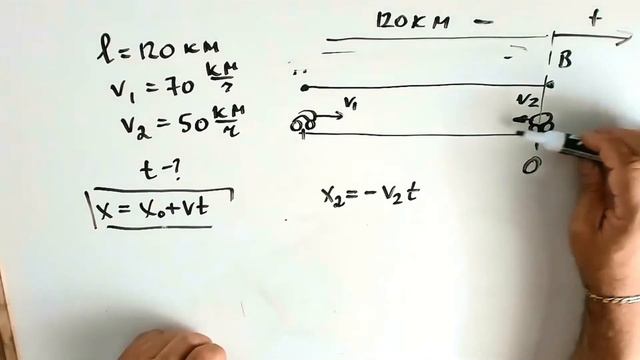 l = 120 км
v₁ = 70 км/ч
v₂ = 50 км/ч
t - ?
x = x₀ + vt
120 км
t
B
v₁
v₂
0
x₂ = - v₂ t